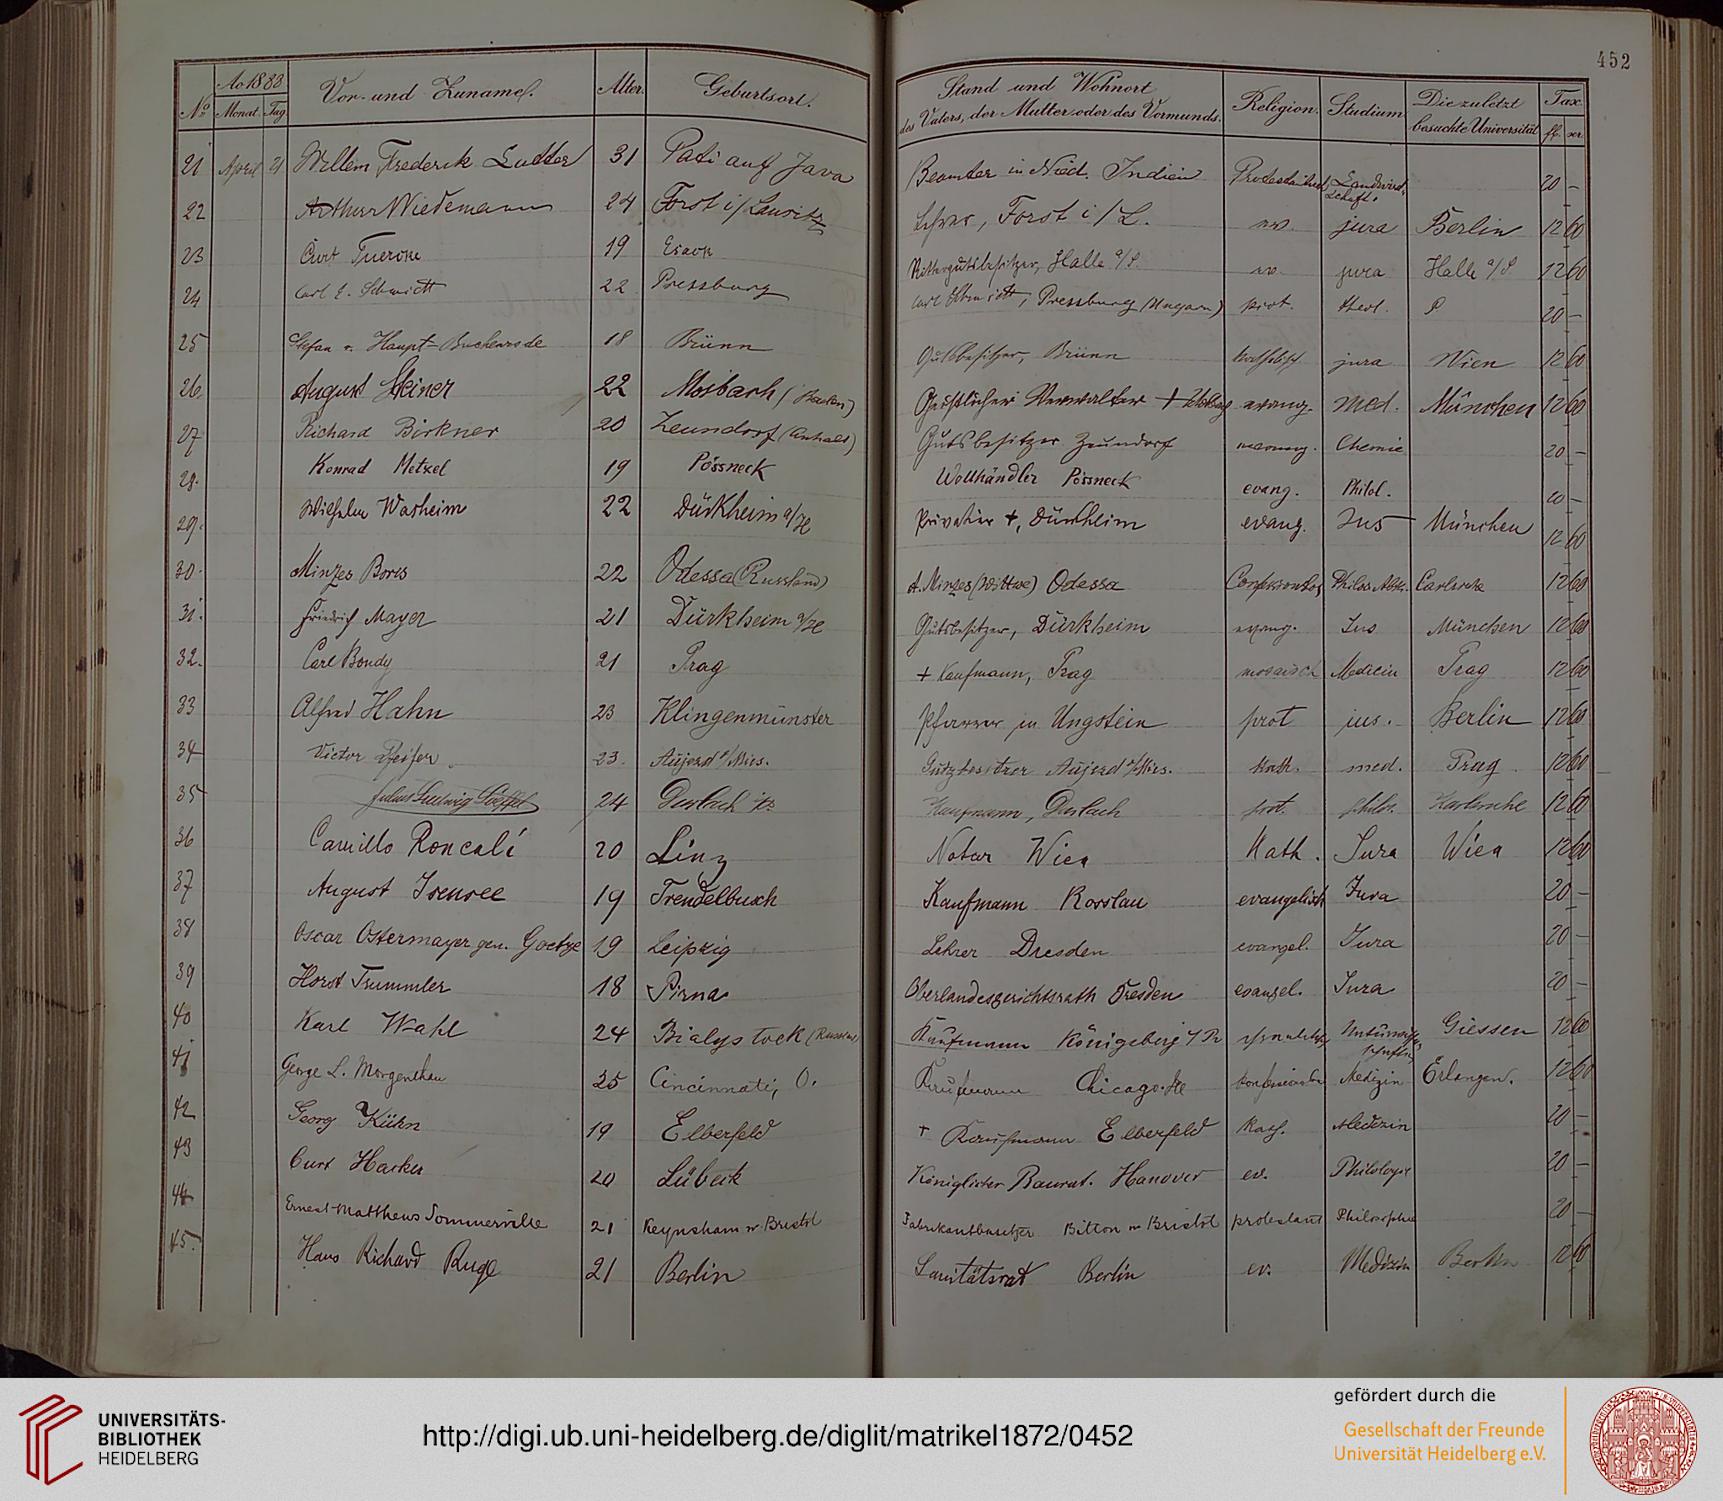 452
Ao 1883
No Monat. Tag. Vor- und Zuname. Alter. Geburtsort. Stand und Wohnort des Vaters, der Mutter oder des Vormunds. Religion. Studium Die zuletzt besuchte Universität Tax. fl. xr
21 April 21 Willem Frederik Lutter 31 Pati auf Java Beamter in Nied. Indien Landwirtschaft. 20 –
22 Arthur Wiedemann 24 Forst i/Lausitz Lehrer, Forst i/L. ev. jura Berlin 12 60
23 Curt 19 Rittergutsbesitzer, Halle a/S. ev. jura Halle a/S 12 60
24 Carl E. Schmidt 22 Pressburg Carl Schmidt, Pressburg (Ungarn) prot. theol. 20 –
25 Stefan v. Haupt-Buchenrode 18 Brünn Gutsbesitzer, Brünn jura Wien 12 60
26. August Steiner 22 Mosbach (Baden) Geistlicher Verwalter + evang. med. München 12 60
27 Richard Birkner 20 Zeundorf (Anhalt) Gutsbesitzer Zeundorf Chemie 20 –
28. Konrad Metzel 19 Pössneck Wollhändler Pössneck evang. Philol. 20 –
29. Wilhelm Warheim 22 Dürkheim a/H Privatier +, Dürkheim evang. Jus München 12 60
30. Minzes Boris 22 Odessa (Russland) A. Minzes (Wittwe) Odessa Confessionslos Carlsruhe 12 60
31. Friedrich Mayer 21 Dürkheim a/H Gutsbesitzer, Dürkheim evang. Jus München 12 60
32. Carl Bondy 21 Prag + Kaufmann, Prag mosaisch Medicin Prag 12 60
33 Alfred Hahn 23 Klingenmünster Pfarrer in Ungstein prot jus. Berlin 12 60
34 Victor Pfeifer 23. Aujezd a/Mies. Gutzbesitzer Aujezd a/Mies. kath. med. Prag 12 60
35 Julius Ludwig 24 Durlach Kaufmann, Durlach prot. philos. Karlsruhe 12 60
36 Camillo Roncali 20 Linz Notar Wien Kath. Jura Wien 12 60
37 August Isensee 19 Trendelbusch Kaufmann Rosslau evangelisch Jura 20 –
38 Oscar Ostermayer gen. Goetze 19 Leipzig Lehrer Dresden evangel. Jura 20 –
39 Horst Trummler 18 Pirna Oberlandesgerichtsrath Dresden evangel. Jura 20 –
40 Karl Wahl 24 Bialystock (Russland) Kaufmann Königsberg i/Pr Giessen 12 60
41 George L. Morgenthau 25 Cincinnati, O. Kaufmann Chicago Medizin Erlangen. 12 60
42 Georg Kühn 19 Elberfeld + Kaufmann Elberfeld Kath. Medizin 20 –
43 Curt Harker 20 Lübeck Königlicher Baurat. Hanover ev. Philologie 20 –
44 Ernest Matthews Sommerville 21 Keynsham nr Bristol Fabrikantbesitzer Bitton nr Bristol protestant Philosophie 20 –
45. Hans Richard Ruge 21 Berlin Sanitätsrat Berlin ev. Medizin Berlin 12 60
UNIVERSITÄTS-
BIBLIOTHEK
HEIDELBERG
http://digi.ub.uni-heidelberg.de/diglit/matrikel1872/0452
gefördert durch die
Gesellschaft der Freunde
Universität Heidelberg e.V.